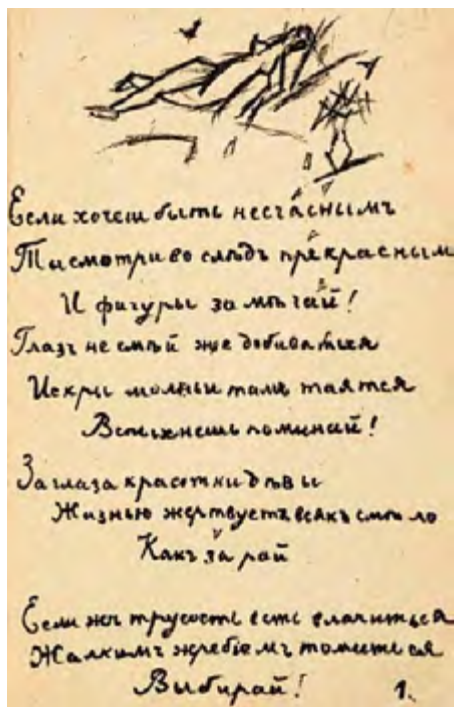 Если хочеш быть несчаснымъ
Ты смотри во слѣдъ прекрасным
И фигуры замѣчай!
Глазъ не смѣй же добиваться
Искры молньи тамъ таятся
Вспыхнешь поминай!
За глаза красотки дѣвы
Жизнью жертвуетъ всякъ смѣло
Какъ за рай
Если жъ трусость есть влачиться
Жалкимъ жребіемъ томиться
Выбирай! 1.